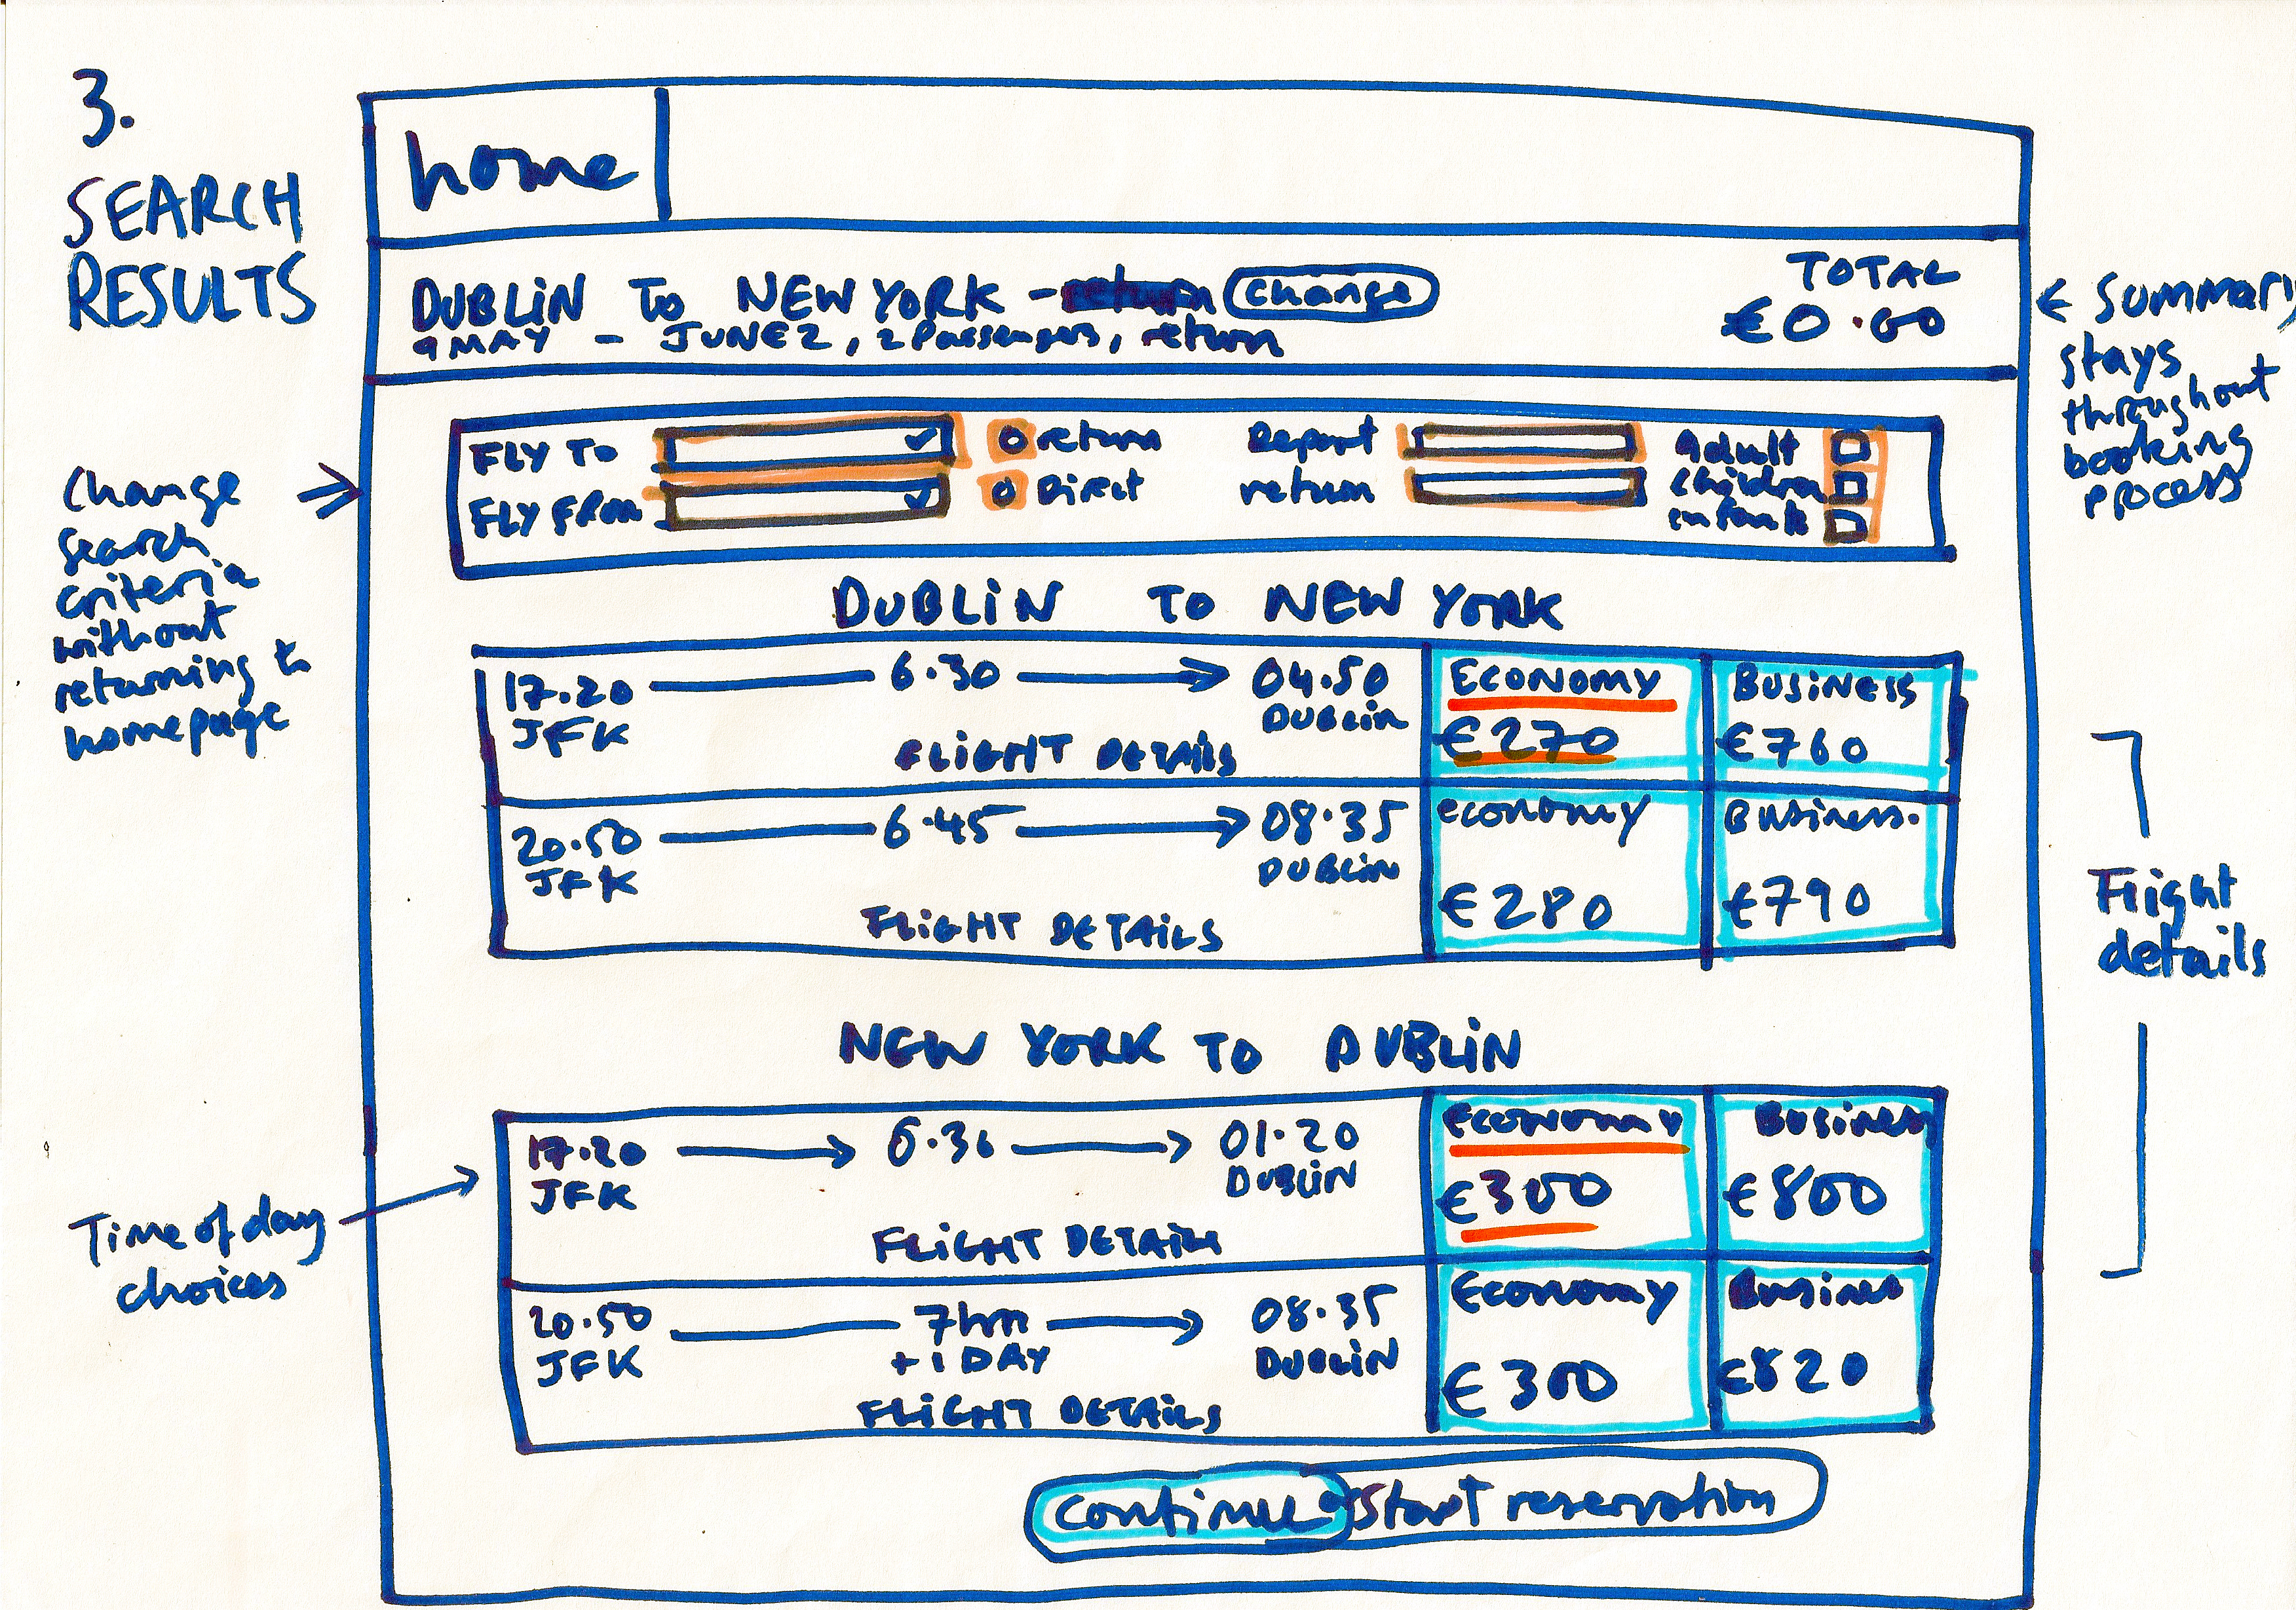 3.
SEARCH
RESULTS
home
DUBLIN TO NEW YORK - return change
9 MAY - JUNE 2, 2 Passengers, return
TOTAL
€0.00
← Summary
stays
throughout
booking
process
Change
search
criteria
without
returning to
homepage
FLY TO
FLY FROM
return
Direct
Depart
return
Adult
children
infants
DUBLIN TO NEW YORK
17.20 → 6.30 → 04.50
JFK DUBLIN
FLIGHT DETAILS
ECONOMY
€270
BUSINESS
€760
20.50 → 6.45 → 08.35
JFK DUBLIN
FLIGHT DETAILS
economy
€280
Business.
€790
Flight
details
NEW YORK TO DUBLIN
Time of day
choices
17.20 → 6.30 → 01.20
JFK DUBLIN
FLIGHT DETAILS
Economy
€300
Business
€800
20.50 → 7hrs → 08.35
JFK + 1 DAY DUBLIN
FLIGHT DETAILS
Economy
€300
Business
€820
continue Start reservation